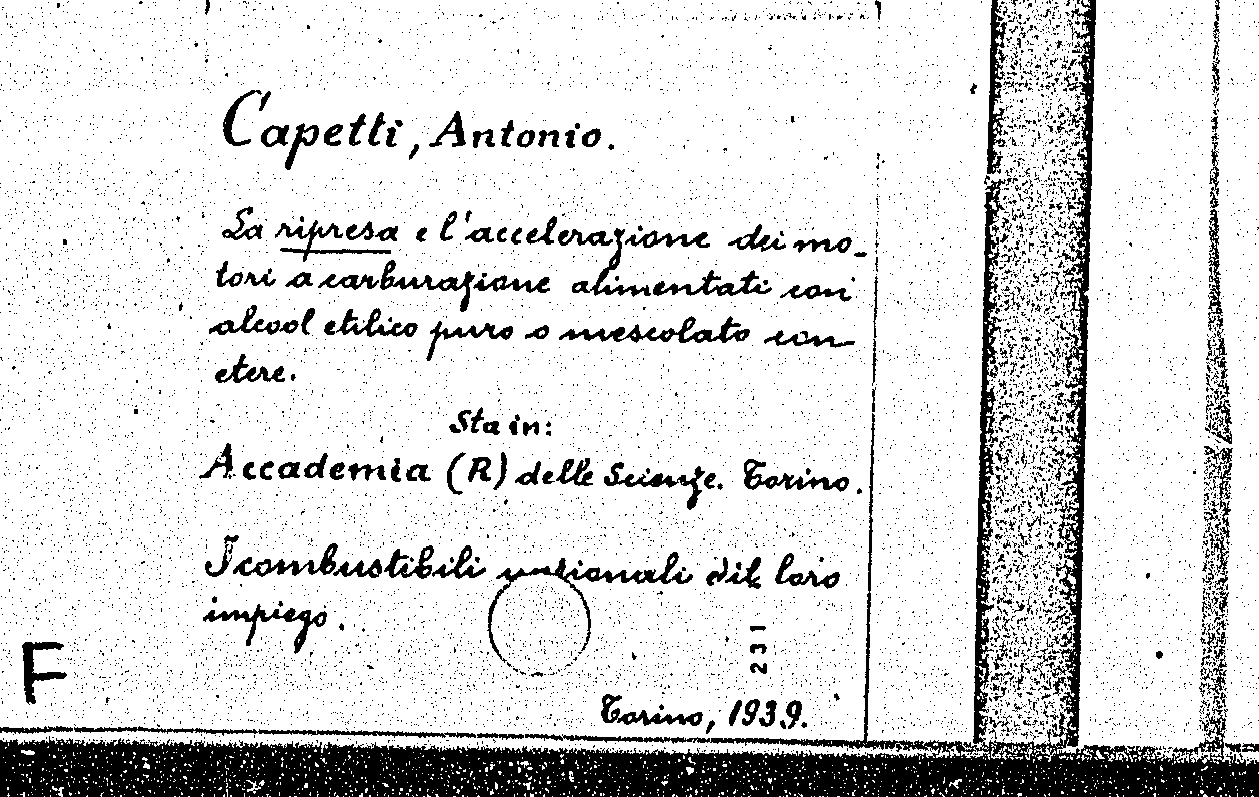 Capetti, Antonio.
La ripresa e l'accelerazione dei mo-
tori a carburazione alimentati con
alcool etilico puro o mescolato con
etere.
Sta in:
Accademia (R) delle Scienze. Torino.
I combustibili nazionali ed il loro
impiego.
231
F
Torino, 1939.